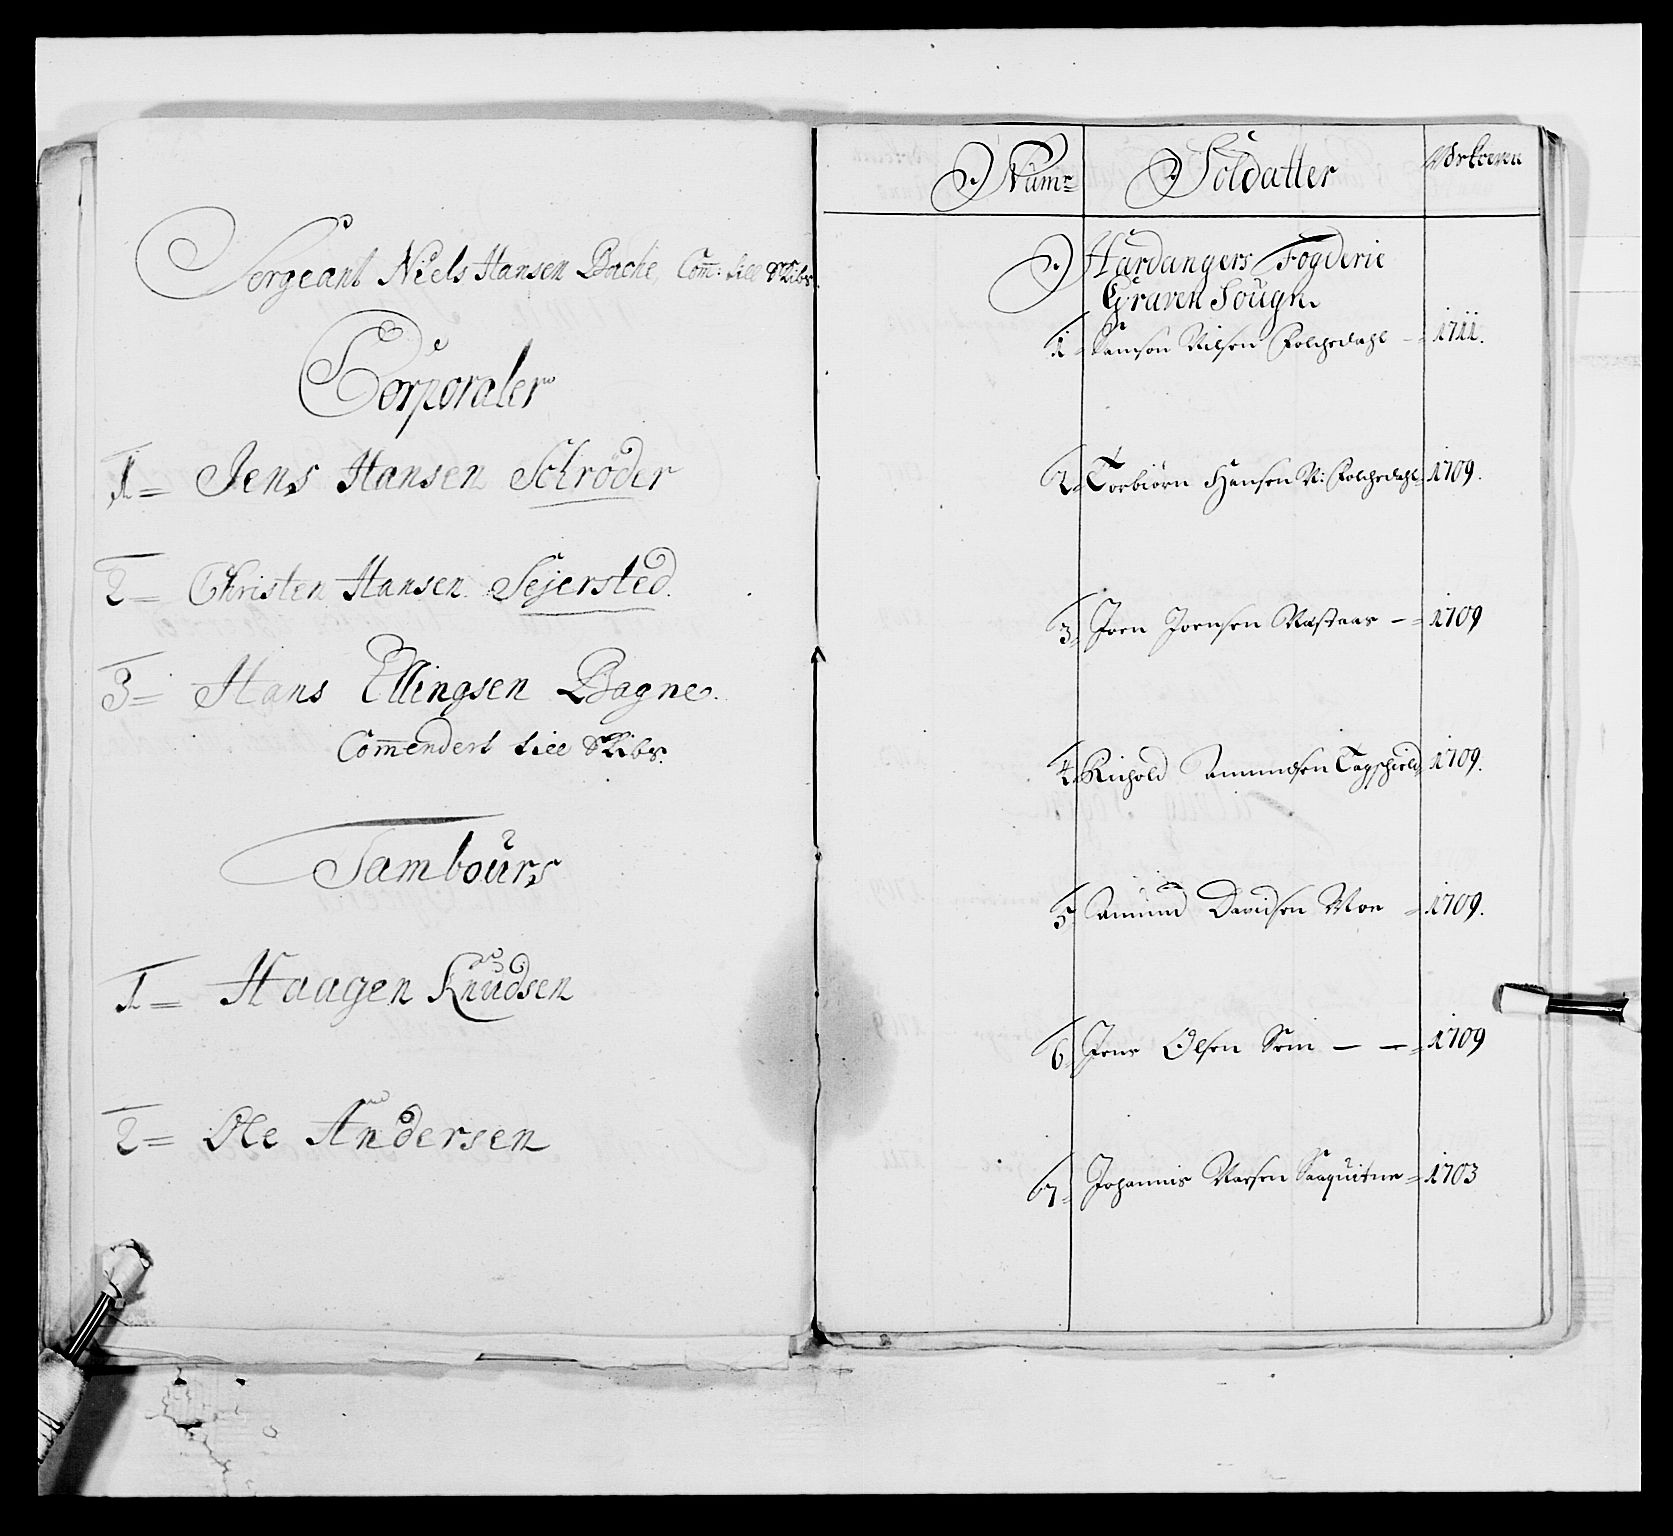 Sergeant Niels Hansen Bache, Com̄: till Skibs.
Corporaler
1 = Jens Hansen Schrøder
2 = Christen Hansen Sejersted.
3 = Hans Ellingsen Bagne.
Com̄endert till Skibs.
Tambours
1 = Haagen Knudsen
2 = Ole Andersen
Num: Soldatter
Hardangers Fogderie
Graven Sougn
1 = Samson Nilsen Folchedahl - = 1711.
2 = Torbiørn Hansen N: Folchedahl = 1709.
3 = Joen Joensen Nestaas - = 1709
4 = Richold Amundsen 1709.
5 = Amund Davidsen Moe = 1709.
6 = Jens Olsen Seim - - = 1709
7 = Johannis Larsen Saaquitne = 1703